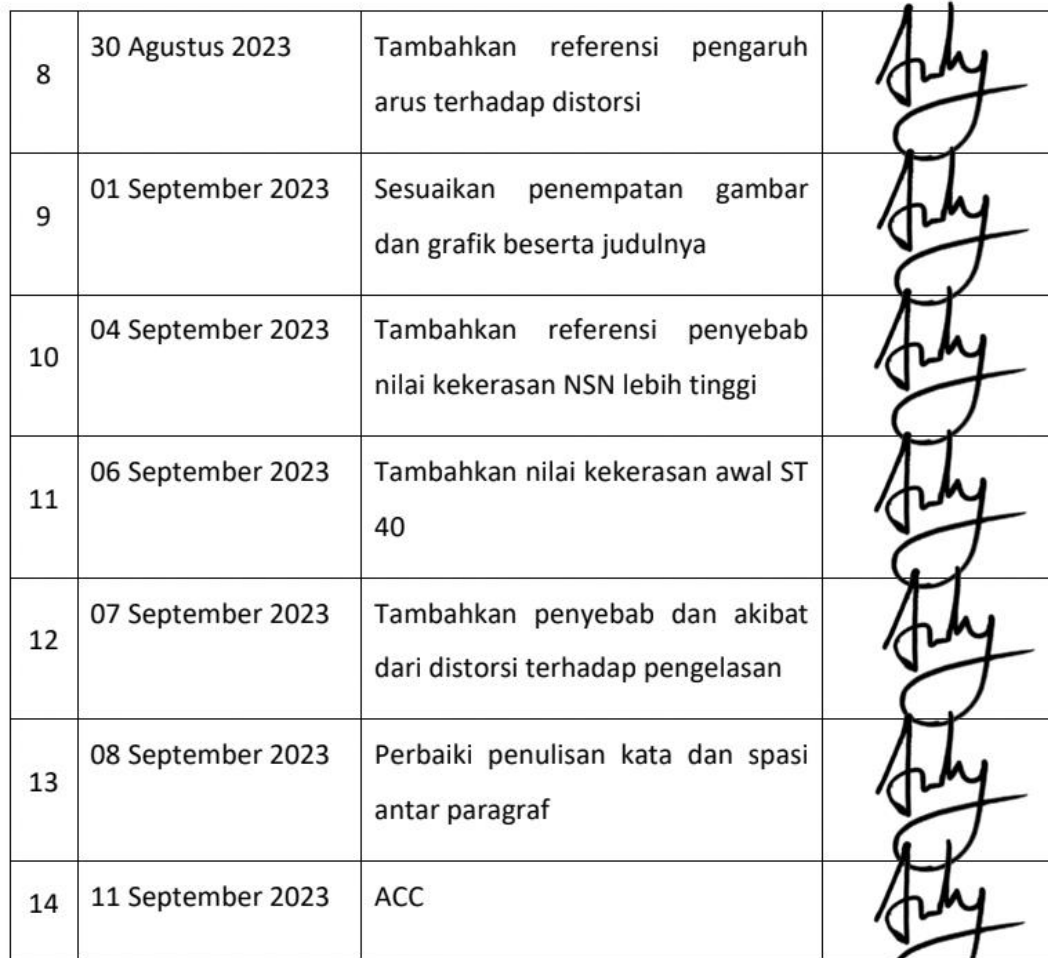 8
30 Agustus 2023
Tambahkan referensi pengaruh
arus terhadap distorsi
9
01 September 2023
Sesuaikan penempatan gambar
dan grafik beserta judulnya
10
04 September 2023
Tambahkan referensi penyebab
nilai kekerasan NSN lebih tinggi
11
06 September 2023
Tambahkan nilai kekerasan awal ST
40
12
07 September 2023
Tambahkan penyebab dan akibat
dari distorsi terhadap pengelasan
13
08 September 2023
Perbaiki penulisan kata dan spasi
antar paragraf
14
11 September 2023
ACC